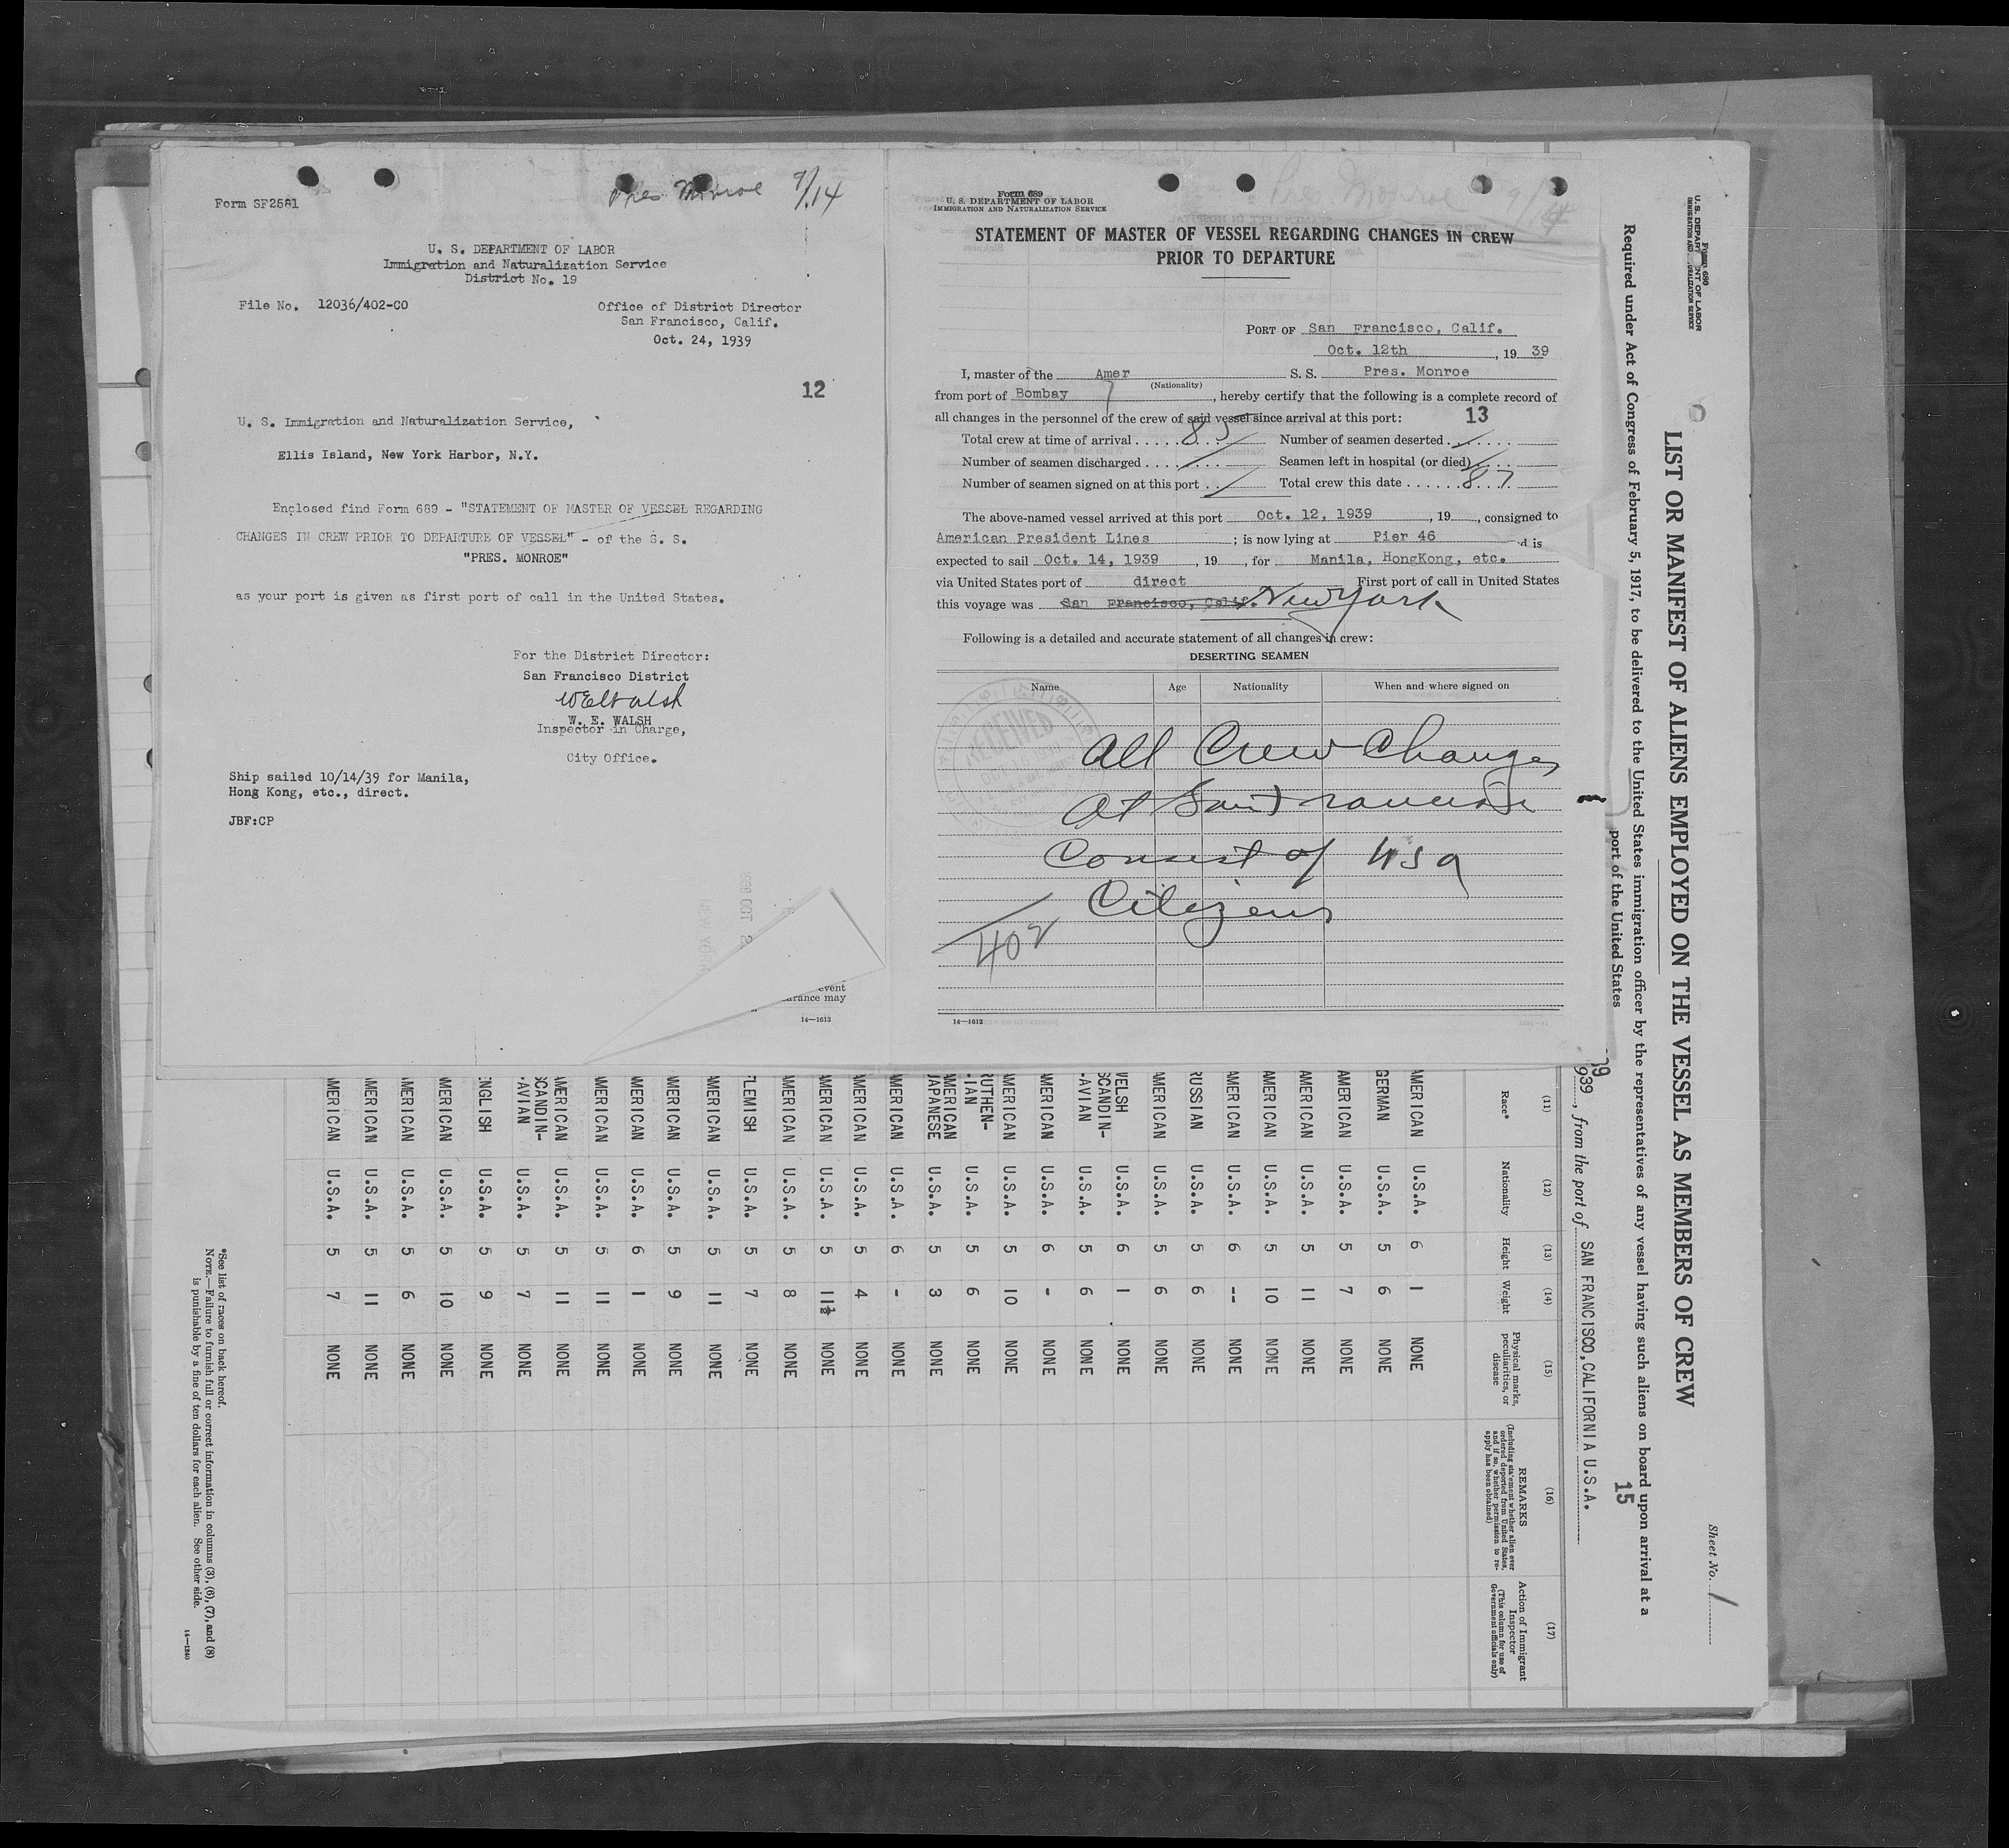 Pres Monroe 9/14
Form SF2581
U. S. DEPARTMENT OF LABOR
Immigration and Naturalization Service
District No. 19
File No. 12036/402-CO
Office of District Director
San Francisco, Calif.
Oct. 24, 1939
12
U. S. Immigration and Naturalization Service,
Ellis Island, New York Harbor, N.Y.
Enclosed find Form 689 - "STATEMENT OF MASTER OF VESSEL REGARDING
CHANGES IN CREW PRIOR TO DEPARTURE OF VESSEL" - of the S. S.
"PRES. MONROE"
as your port is given as first port of call in the United States.
For the District Director:
San Francisco District
WEWalsh
W. E. WALSH
Inspector in Charge,
City Office.
Ship sailed 10/14/39 for Manila,
Hong Kong, etc., direct.
JBF:CP
event
arance may
14—1613
Form 689
U. S. DEPARTMENT OF LABOR
IMMIGRATION AND NATURALIZATION SERVICE
STATEMENT OF MASTER OF VESSEL REGARDING CHANGES IN CREW
PRIOR TO DEPARTURE
PORT OF San Francisco, Calif.
Oct. 12th, 19 39
I, master of the Amer S. S. Pres. Monroe
(Nationality)
from port of Bombay, hereby certify that the following is a complete record of
all changes in the personnel of the crew of said vessel since arrival at this port: 13
Total crew at time of arrival Number of seamen deserted
Number of seamen discharged Seamen left in hospital (or died)
Number of seamen signed on at this port Total crew this date 87
The above-named vessel arrived at this port Oct. 12, 1939, 19, consigned to
American President Lines; is now lying at Pier 46 d is
expected to sail Oct. 14, 1939, 19, for Manila, HongKong, etc.
via United States port of direct First port of call in United States
this voyage was San Francisco, Calif. New York
Following is a detailed and accurate statement of all changes in crew:
DESERTING SEAMEN
Name Age Nationality When and where signed on
RECEIVED
All Crew Changes
At San Francisco
Consist of USA
Citizens
402
14—1613
Form 689
U. S. DEPARTMENT OF LABOR
IMMIGRATION AND NATURALIZATION SERVICE
Sheet No. 1
LIST OR MANIFEST OF ALIENS EMPLOYED ON THE VESSEL AS MEMBERS OF CREW
Required under Act of Congress of February 5, 1917, to be delivered to the United States immigration officer by the representatives of any vessel having such aliens on board upon arrival at a
port of the United States
15
939, from the port of SAN FRANCISCO, CALIFORNIA U.S.A.
(11) (12) (13) (14) (15) (16) (17)
Race* Nationality Height Weight Physical marks, peculiarities, or disease REMARKS (Including statement whether alien ever ordered deported from United States, and if so, whether permission to reapply has been obtained) Action of Immigrant Inspector (This column for use of Government officials only)
MERICAN U.S.A. 6 1 NONE
GERMAN U.S.A. 5 6 NONE
MERICAN U.S.A. 5 7 NONE
MERICAN U.S.A. 5 11 NONE
MERICAN U.S.A. 5 10 NONE
MERICAN U.S.A. 6 -- NONE
RUSSIAN U.S.A. 5 6 NONE
MERICAN U.S.A. 5 6 NONE
WELSH U.S.A. 6 1 NONE
SCANDIN-
AVIAN U.S.A. 5 6 NONE
MERICAN U.S.A. 6 - NONE
MERICAN U.S.A. 5 10 NONE
RUTHEN-
IAN U.S.A. 5 6 NONE
AMERICAN
JAPANESE U.S.A. 5 3 NONE
MERICAN U.S.A. 6 - NONE
MERICAN U.S.A. 5 4 NONE
MERICAN U.S.A. 5 11½ NONE
MERICAN U.S.A. 5 8 NONE
FLEMISH U.S.A. 5 7 NONE
MERICAN U.S.A. 5 11 NONE
MERICAN U.S.A. 5 9 NONE
MERICAN U.S.A. 6 1 NONE
MERICAN U.S.A. 5 11 NONE
MERICAN U.S.A. 5 11 NONE
SCANDIN-
AVIAN U.S.A. 5 7 NONE
ENGLISH U.S.A. 5 9 NONE
MERICAN U.S.A. 5 10 NONE
MERICAN U.S.A. 5 6 NONE
MERICAN U.S.A. 5 11 NONE
MERICAN U.S.A. 5 7 NONE
*See list of races on back hereof.
NOTE.—Failure to furnish full or correct information in columns (3), (6), (7), and (8)
is punishable by a fine of ten dollars for each alien. See other side.
14—1240